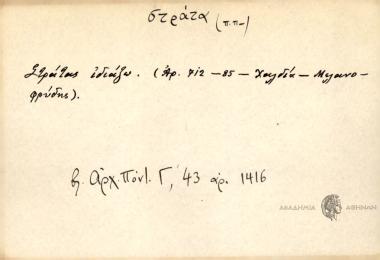 στράτα (π.π-)
Στράτας ἐδιάζω. (Ἀρ. 712 - 85 - Χαλδία - Μελανο-
φρύδης).
β. Ἀρχ. Πόντ. Γ, 43 ἀρ. 1416
ΑΚΑΔΗΜΙΑ ΑΘΗΝΩΝ